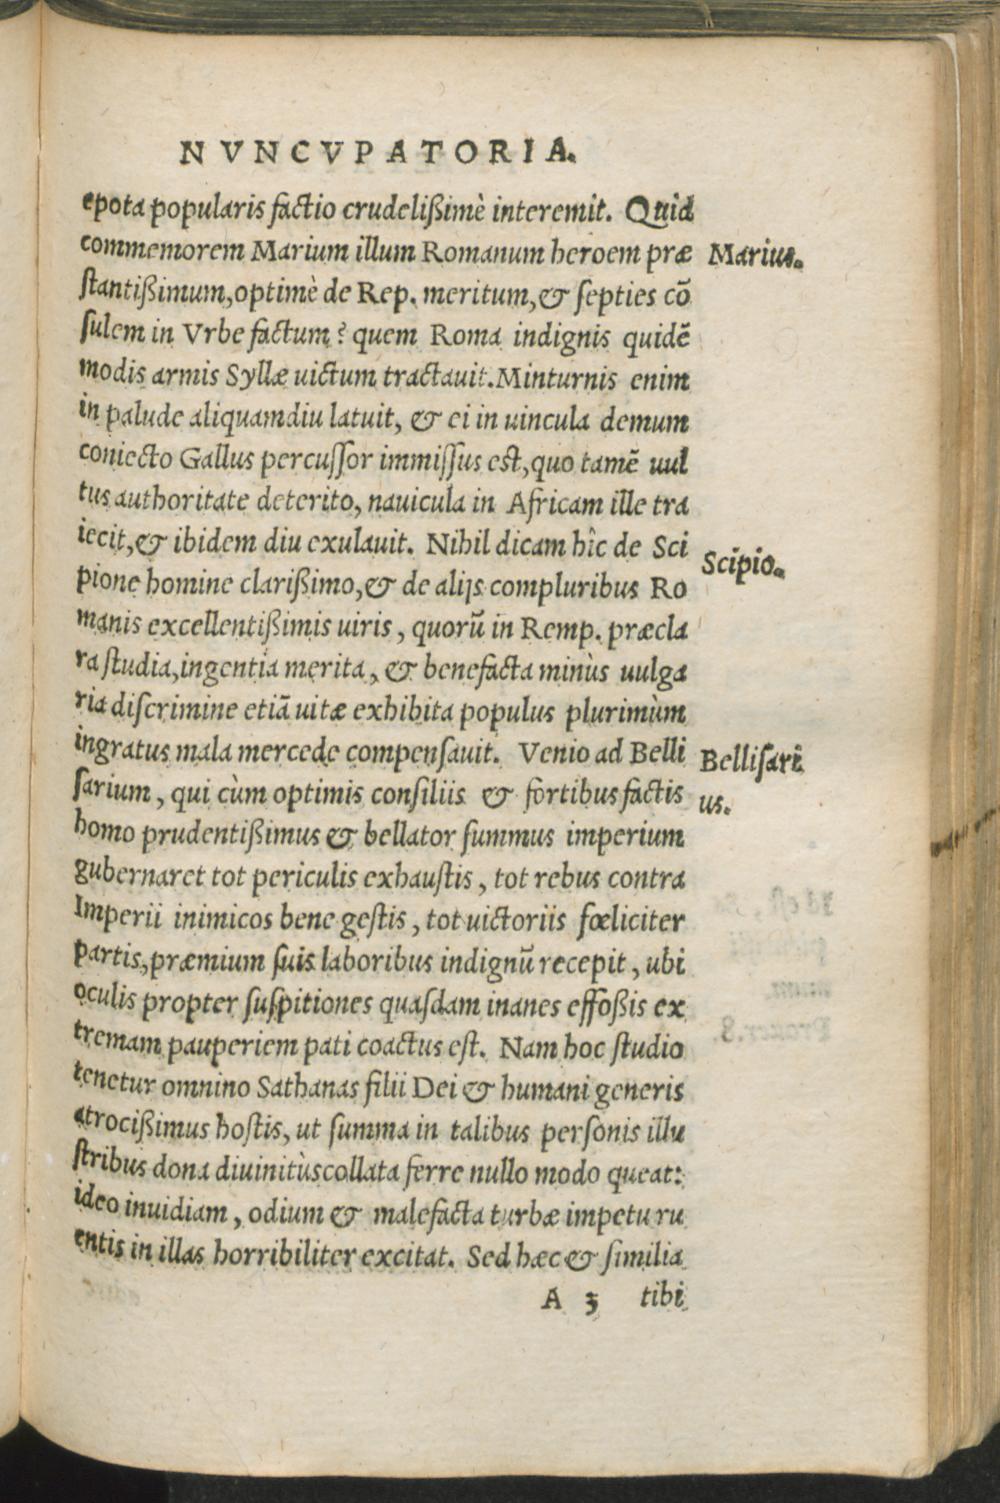 NVNCVPATORIA.
epota popularis factio crudelißimè interemit. Quid
commemorem Marium illum Romanum heroem præ
Marius.
stantißimum, optimè de Rep. meritum, & septies cō
sulem in Vrbe factum? quem Roma indignis quidē
modis armis Syllæ uictum tractauit. Minturnis enim
in palude aliquamdiu latuit, & ei in uincula demum
coniecto Gallus percussor immissus est, quo tamē uul
tus authoritate deterito, nauicula in Africam ille tra
iecit, & ibidem diu exulauit. Nihil dicam hîc de Sci
Scipio.
pione homine clarißimo, & de alijs compluribus Ro
manis excellentißimis uiris, quorū in Remp. præcla
ra studia, ingentia merita, & benefacta minùs uulga
ria discrimine etiā uitæ exhibita populus plurimùm
ingratus mala mercede compensauit. Venio ad Belli
Bellisari
sarium, qui cùm optimis consiliis & fortibus factis
us.
homo prudentißimus & bellator summus imperium
gubernaret tot periculis exhaustis, tot rebus contra
Imperii inimicos bene gestis, tot uictoriis fœliciter
partis, præmium suis laboribus indignū recepit, ubi
oculis propter suspitiones quasdam inanes effoßis ex
tremam pauperiem pati coactus est. Nam hoc studio
tenetur omnino Sathanas filii Dei & humani generis
atrocißimus hostis, ut summa in talibus personis illu
stribus dona diuinitùs collata ferre nullo modo queat:
ideo inuidiam, odium & malefacta turbæ impetu ru
entis in illas horribiliter excitat. Sed hæc & similia
A 3 tibi